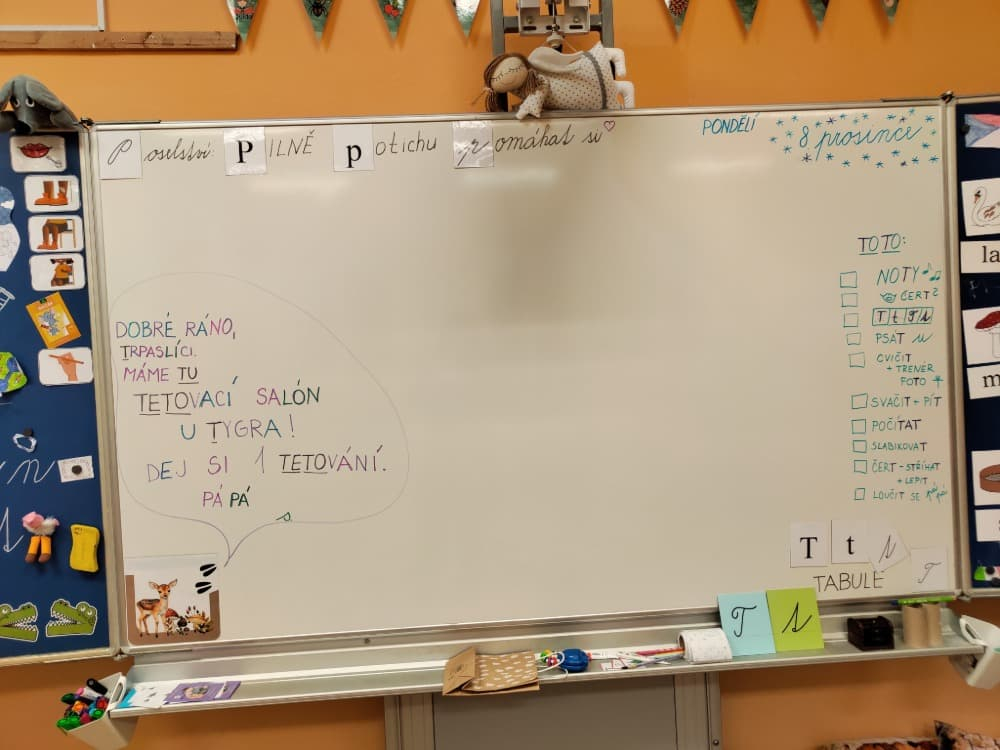 P oselství: PILNĚ p otichu p omáhat si
PONDĚLÍ
8 prosince
DOBRÉ RÁNO,
TRPASLÍCI.
MÁME TU
TETOVACÍ SALÓN
U TYGRA!
DEJ SI 1 TETOVÁNÍ.
PÁ PÁ
s.
TOTO:
NOTY
ČERT
T t T t
PSÁT
CVIČIT
+ TRENÉR
FOTO
SVAČIT + PÍT
POČÍTAT
SLABIKOVAT
ČERT - STŘÍHAT
+ LEPIT
LOUČIT SE
T t t T
TABULE
T t
la
m
n